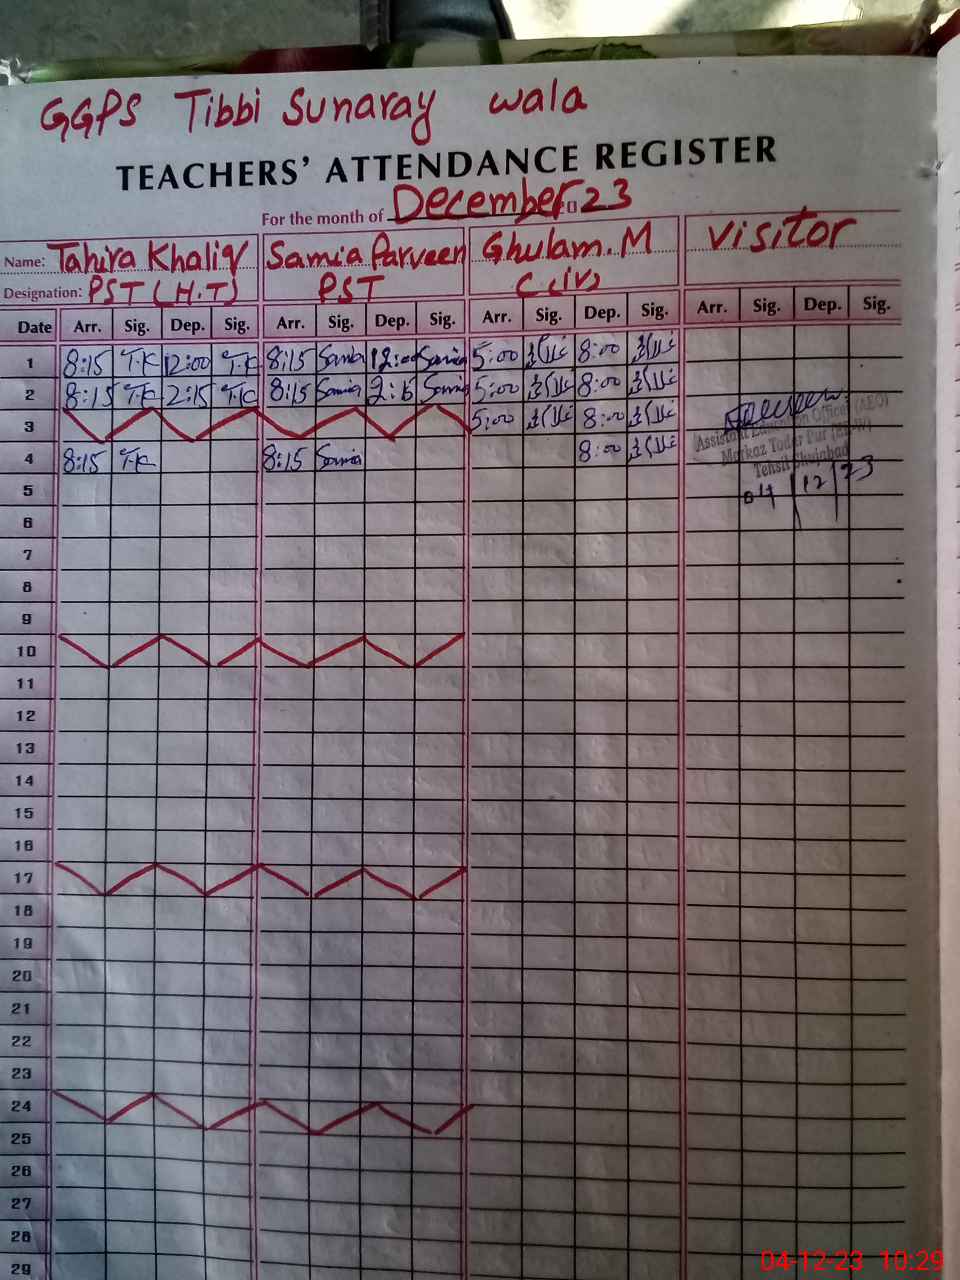 GGPS Tibbi Sunaray wala
TEACHERS' ATTENDANCE REGISTER
For the month of December 23
Name: Tahira Khaliq Samia Parveen Ghulam.M visitor
Designation: PST (H.T) PST C(iv)
Date Arr. Sig. Dep. Sig. Arr. Sig. Dep. Sig. Arr. Sig. Dep. Sig. Arr. Sig. Dep. Sig.
1 8:15 T.K 12:00 T.K 8:15 Samia 12:00 Samia 5:00 8:00
2 8:15 T.K 2:15 T.K 8:15 Samia 2:15 Samia 5:00 8:00
3 5:00 8:00
4 8:15 T.K 8:15 Samia 8:00
Assistant Education Officer (AEO)
Markaz Todar Pur
Tehsil Shujabad
04/12/23
5
6
7
8
9
10
11
12
13
14
15
16
17
18
19
20
21
22
23
24
25
26
27
28
29
04-12-23 10:29